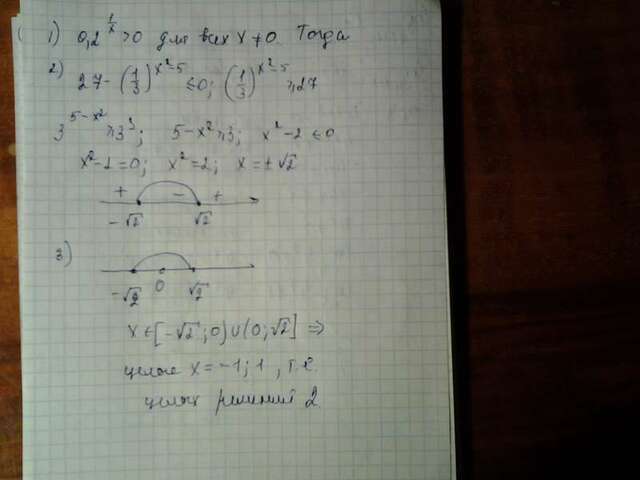 1) 0,2^(1/x) >0 для всех x ≠ 0. Тогда
2) 27 - (1/3)^(x²-5) ≤0; (1/3)^(x²-5) ≥27
3^(5-x²) ≥3³; 5-x²≥3; x²-2 ≤0
x²-2=0; x²=2; x=±√2
+ - +
-√2 √2
3)
-√2 0 √2
x∈[-√2;0)∪(0;√2] ⇒
целые x = -1; 1, т.е.
целых решений 2